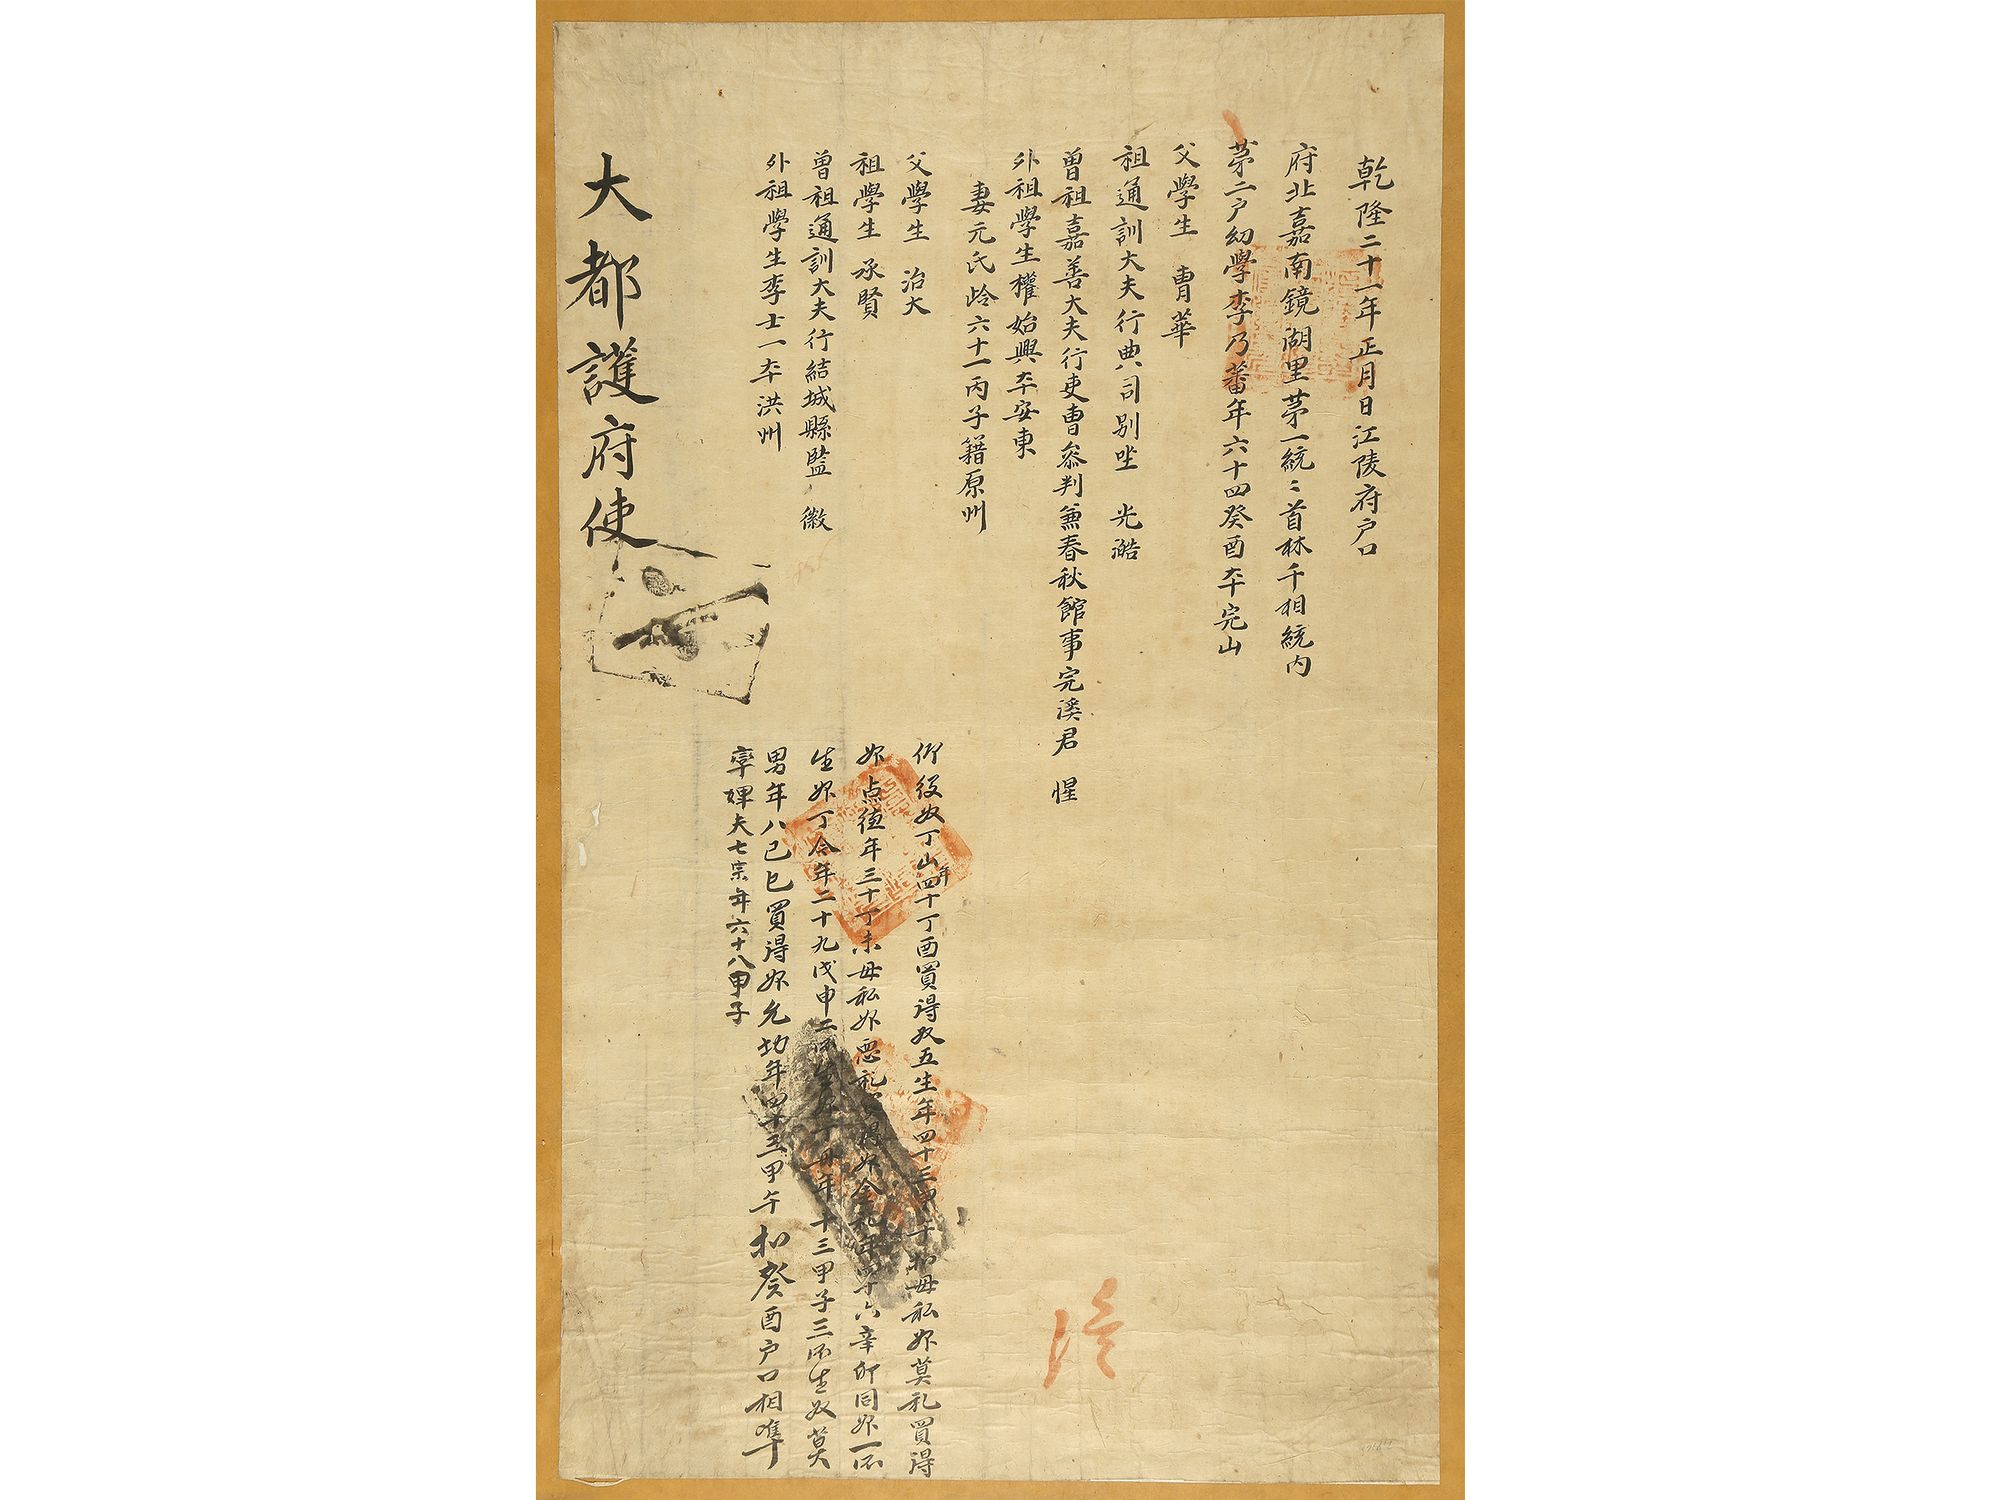 乾隆二十一年正月日江陵府戶口
府北嘉南鏡湖里苐一統〻首林千相統內
苐二戶幼學李乃蕃年六十四癸酉夲完山
父學生 胄華
祖通訓大夫行典司別㘴 光澔
曾祖嘉善大夫行吏曹叅判兼春秋館事完溪君 惺
外祖學生權始興夲安東
妻元氏岭六十一丙子籍原州
父學生 治大
祖學生 承賢
曾祖通訓大夫行結城縣監 徽
外祖學生李士一夲洪州
仰役奴丁山年四十丁酉買得奴五生年四十三甲午 母私婢莫礼買得
婢点德年三十丁未母私婢 礼 得婢今礼年四十六辛卯同婢一所
生婢丁今年二十九戊申二所生 丁 年十三甲子三所生奴莫
男年八己巳買得婢允 年四十三甲午 癸酉戶口相凖
率婢夫七宗年六十八甲子
大都護府使